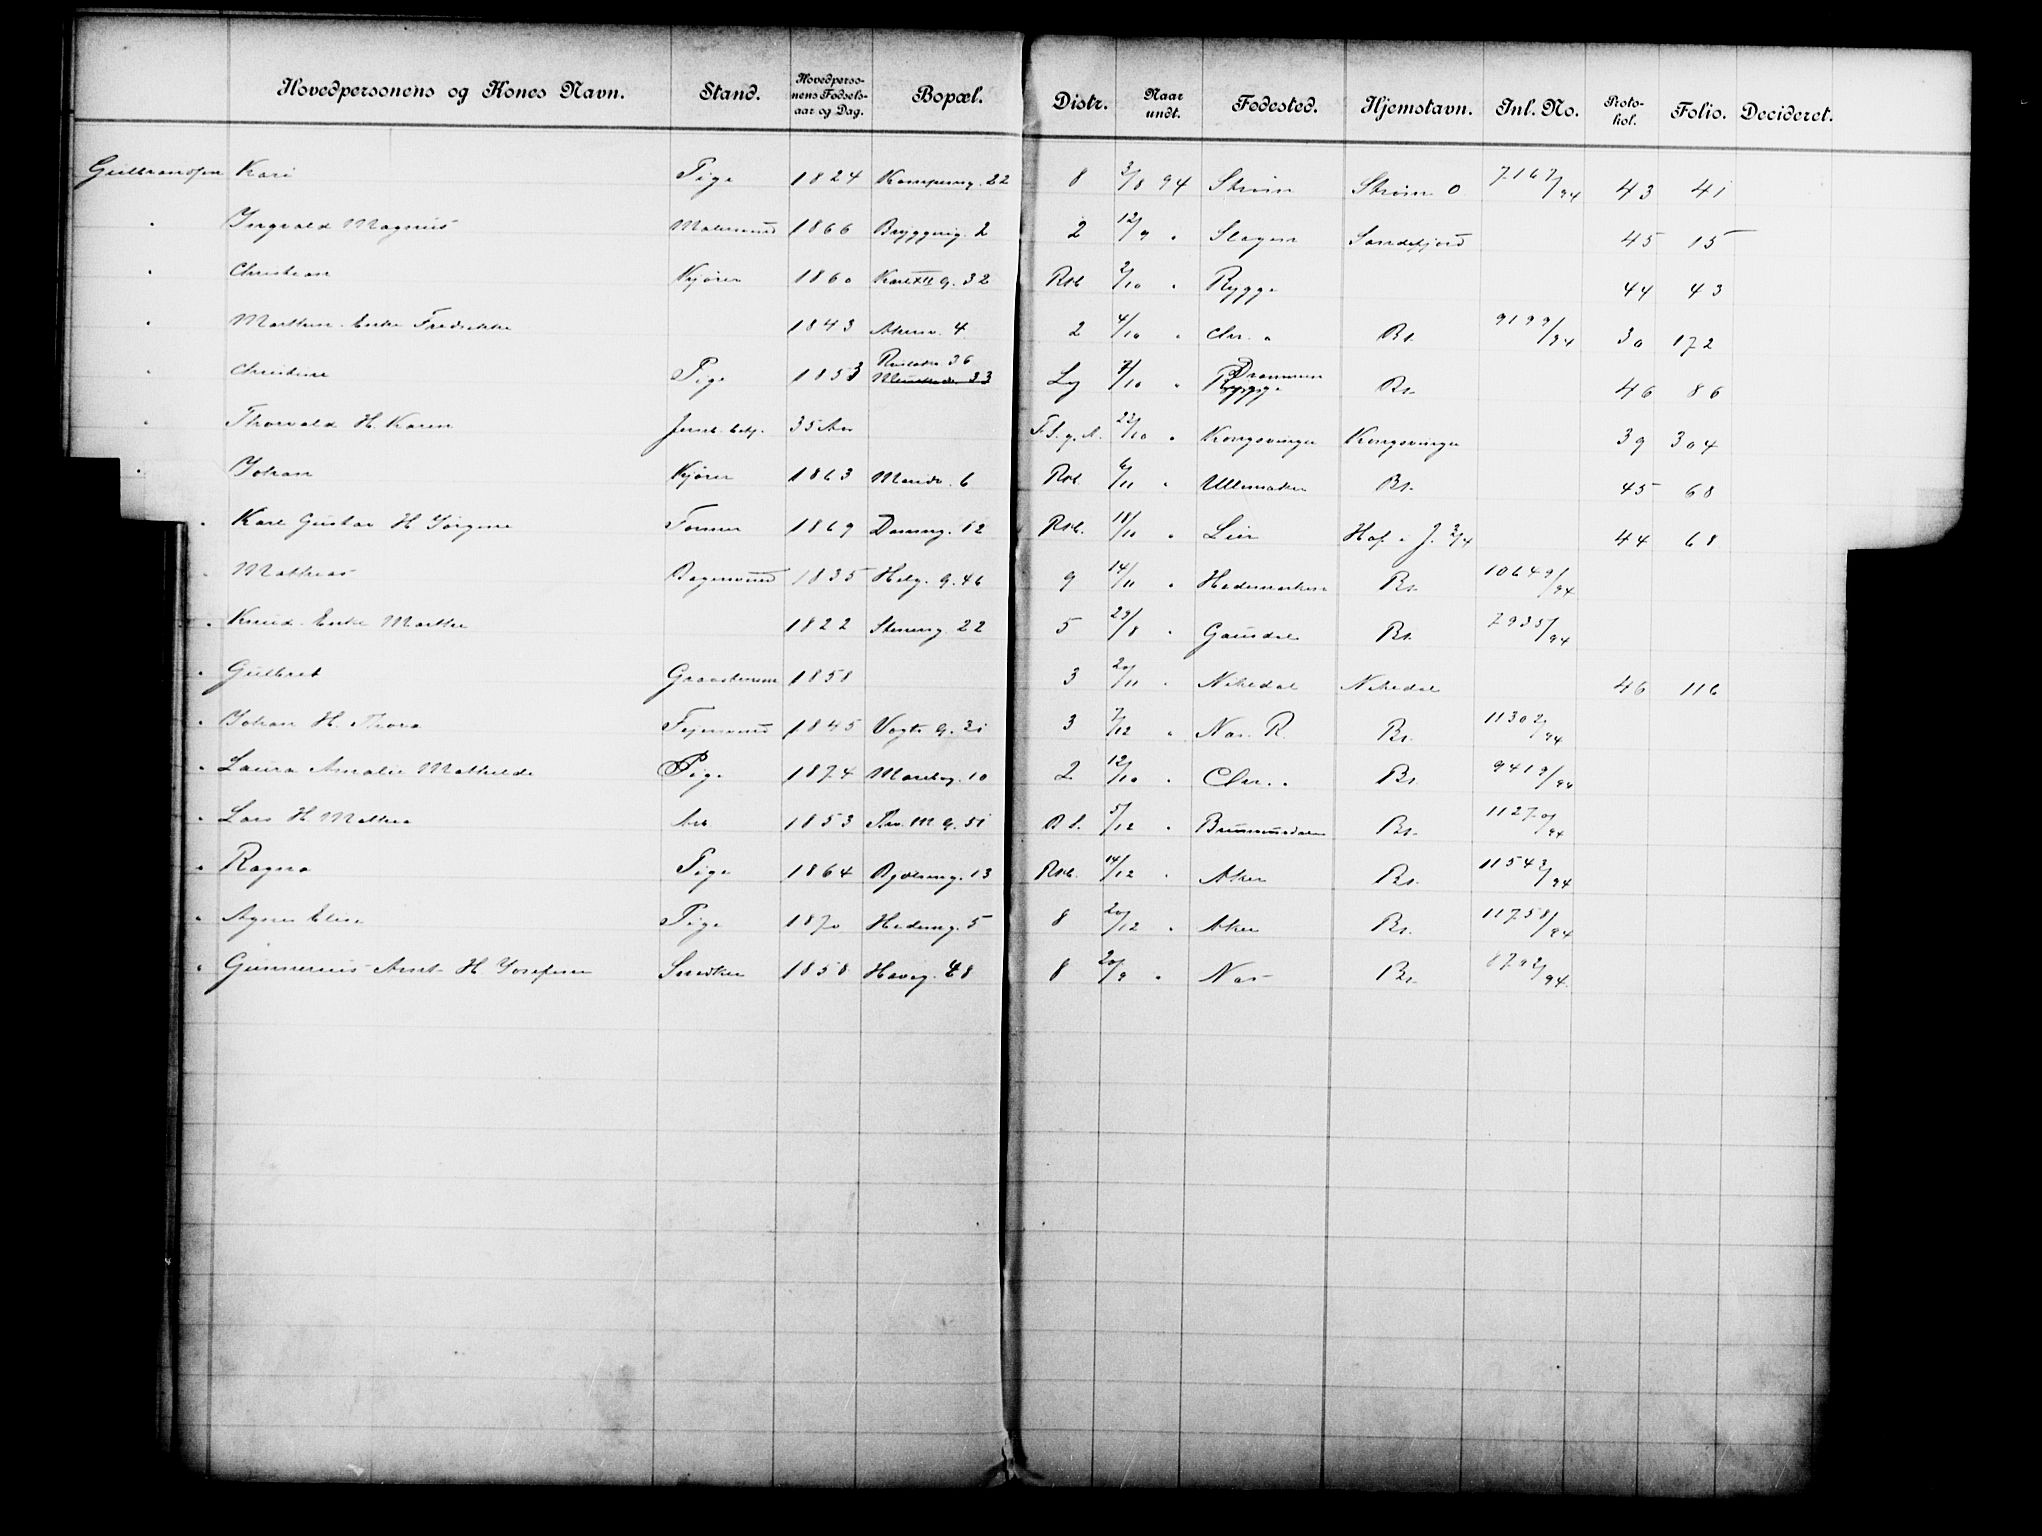 Hovedpersonens og Kones Navn. Stand. Hovedperso-nens Fødsels-aar og Dag. Bopæl. Distr. Naar undt. Fødested. Hjemstavn. Inl. No. Proto-kol. Folio. Decideret.
Gulbrandsen Kari Pige 1824 Kampeng. 22 8 3/8 94 Strøm Strøm O 7167/94 43 41
" Ingvald Magnus Matersvend 1866 Bryggerig. 2 2 12/9 " Slagen Sandefjord 45 15
" Christian Kjører 1860 Karl XII g. 32 Rst 2/10 " Rygge 44 43
" Marthin. Enke Fredrikke 1843 Akersv. 4 2 4/10 " Chr. a Bt. 9199/94 30 172
" Christine Pige 1853 36 33 Lg 7/10 " Drammen Rygge Bt. 46 86
" Thorvald H. Karen Jernb. betj. 35 Aar 22/10 " Kongsvinger Kongsvinger 39 304
" Johan Kjører 1863 Marid. 6 Rst. 6/11 " Ullensaker Bt. 45 68
" Karl Gustav H Jørgine Former 1869 12 Rst. 18/10 " Lier Hof i J. 44 68
" Mathias Bagersvend 1835 Helg. g. 46 9 14/11 " Hedemarken Bt. 10649/94
" Knud. Enke Marthe 1822 Steners g. 22 5 29/8 " Gausdal Bt. 7935/94
" Gulbret 1858 3 20/11 " Nitedal Nitedal 46 116
" Johan H. Thora Fejersvend 1845 Vogts g. 31 3 7/12 " Næs. R. Bt. 11302/94
" Laura Amalie Mathilde Pige 1874 10 2 12/10 " Chr. a Bt. 9419/94
" Lars H Mathea Arb 1853 Thv. M g. 51 5/12 " Brummundalen Bt. 11270/94
" Ragna Pige 1864 13 Rst. 14/12 " Aker Bt. 11543/94
" Agnes Elise Pige 1870 Hedemg. 5 8 20/12 " Aker Bt. 11758/94
" Gunnerius Arnt H Josefine Snedker 1858 48 8 20/9 " Næs Bt. 8792/94